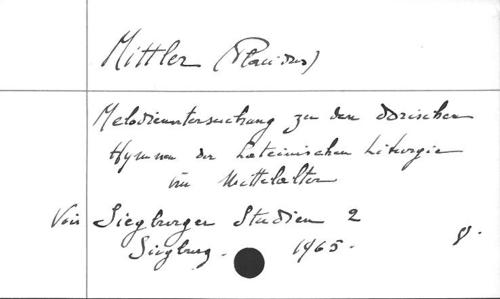 Mittler (Placidus)
Melodieuntersuchung zu den dorischen
Hymnen der lateinischen Liturgie
im Mittelalter
Voir Siegburger Studien 2
Siegburg. 1965. 8.